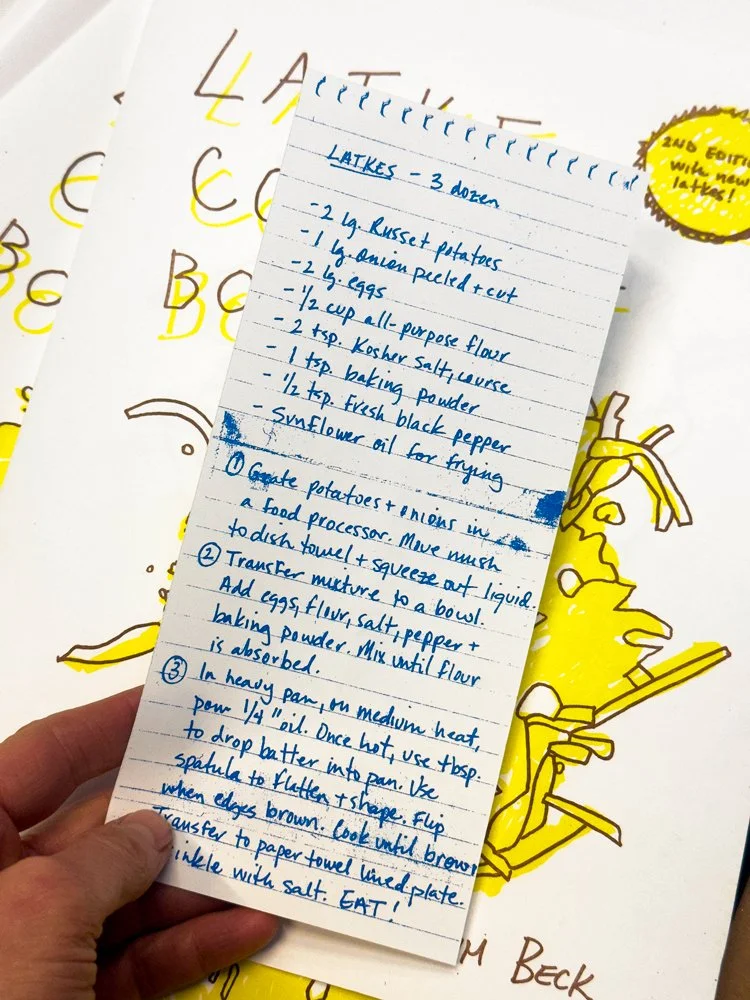 LATKE
CO
BO
2ND EDITION
with new
latkes!
LATKES - 3 dozen
- 2 lg. Russet potatoes
- 1 lg. onion peeled + cut
- 2 lg. eggs
- 1/2 cup all-purpose flour
- 2 tsp. Kosher salt, course
- 1 tsp. baking powder
- 1/2 tsp. fresh black pepper
- Sunflower oil for frying
① Grate potatoes + onions in
a food processor. Move mush
to dish towel + squeeze out liquid.
② Transfer mixture to a bowl.
Add eggs, flour, salt, pepper +
baking powder. Mix until flour
is absorbed.
③ In heavy pan, on medium heat,
pour 1/4" oil. Once hot, use tbsp.
to drop batter into pan. Use
spatula to flatten + shape. Flip
when edges brown. Cook until brown
Transfer to paper towel lined plate.
inkle with salt. EAT!
M BECK